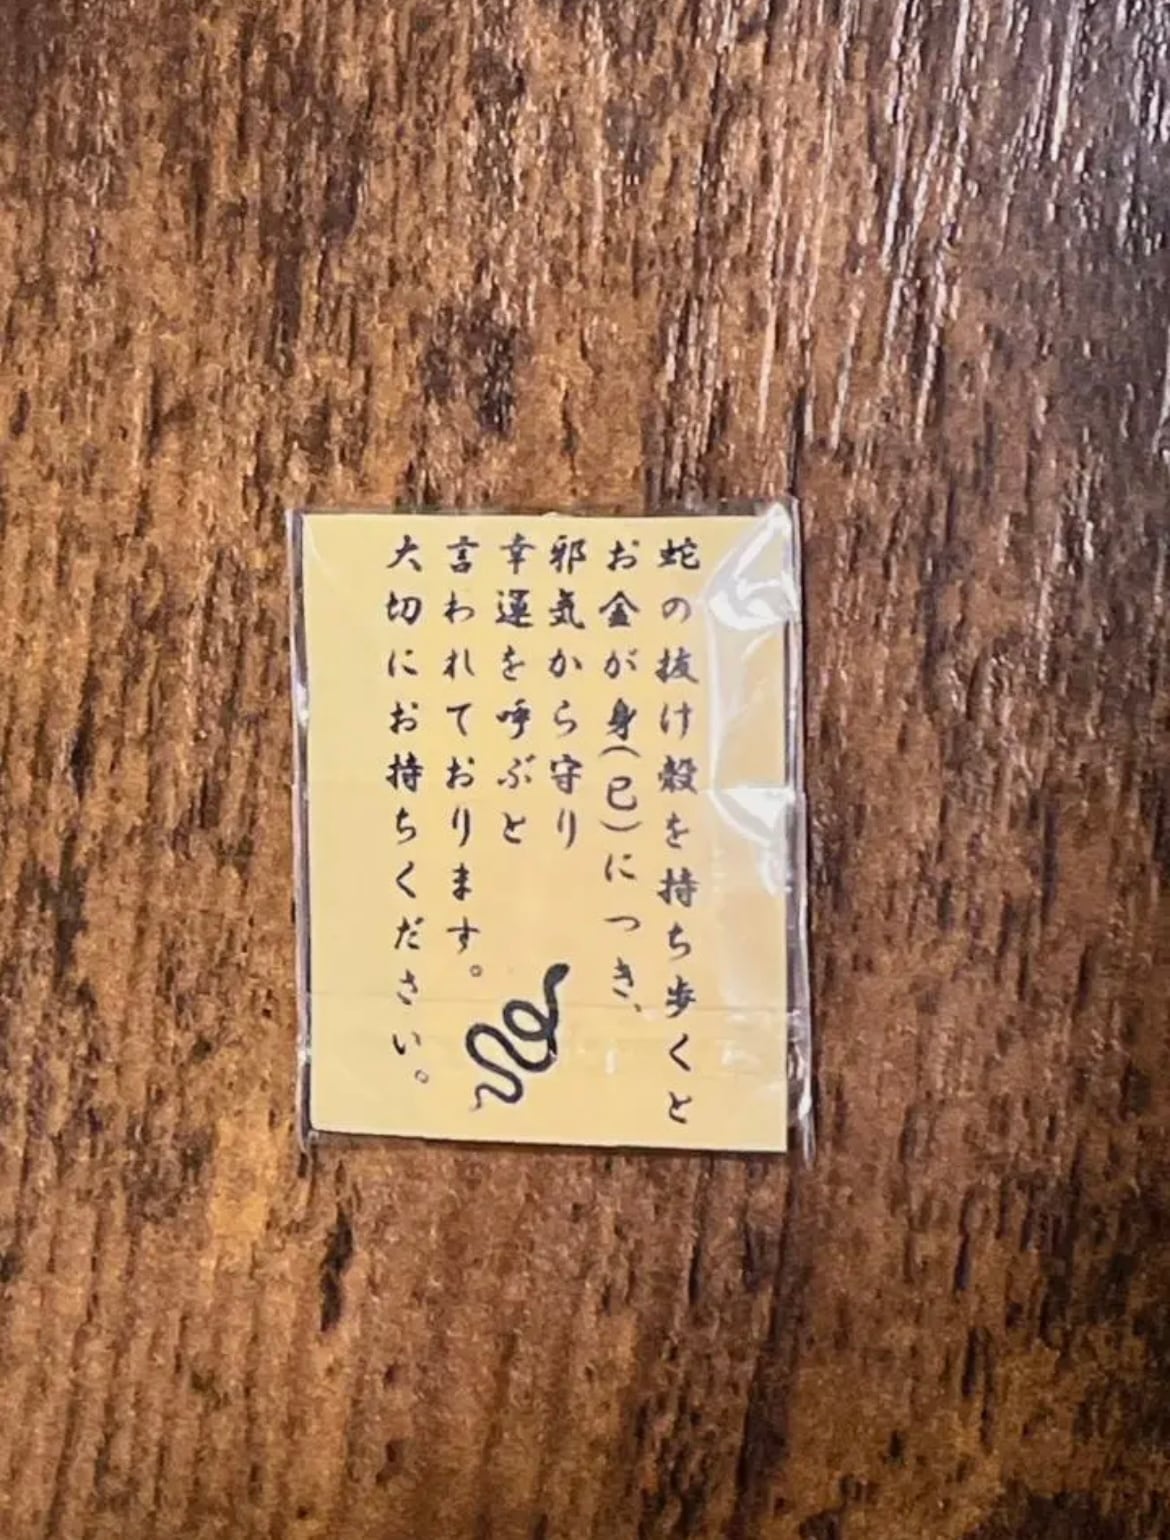 蛇の抜け殻を持ち歩くと
お金が身(巳)につき、
邪気から守り
幸運を呼ぶと
言われております。
大切にお持ちください。